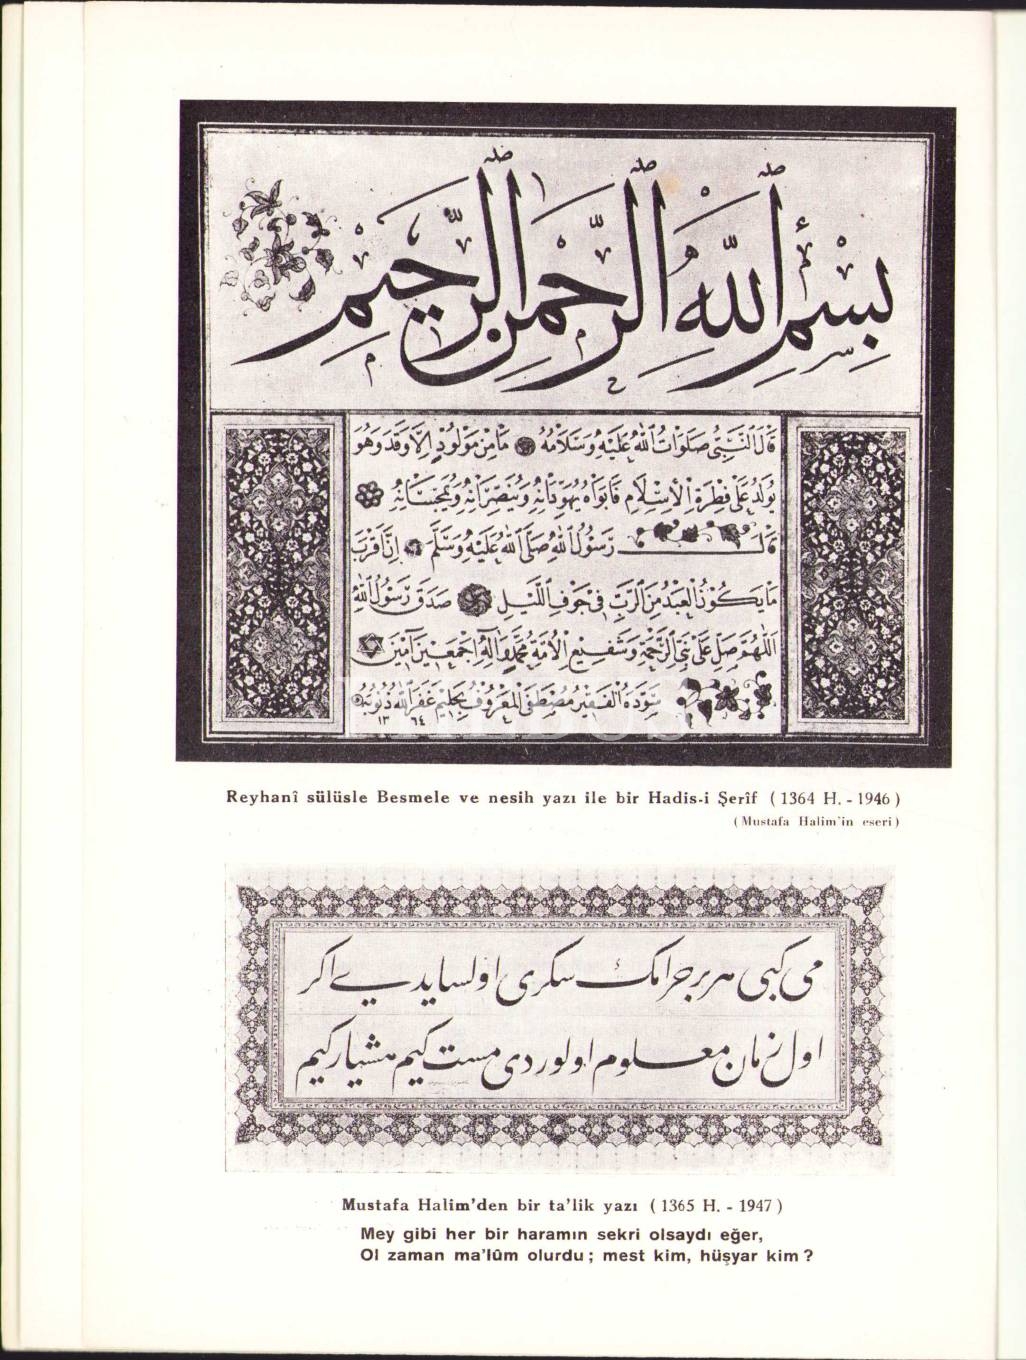 بسم الله الرحمن الرحيم
قال النبي صلوات الله عليه وسلامه ما من مولود الا وقد وهو
يولد على فطرة الاسلام فابواه يهودانه وينصرانه ويمجسانه
قال رسول الله صلى الله عليه وسلم ان اقرب
ما يكون العبد من الرب في جوف الليل صدق رسول الله
اللهم صل على نبي الرحمة وشفيع الامة محمد وآله اجمعين آمين
سوده الفقير مصطفى المعروف بحليم غفر الله ذنوبه
١٣٦٤
Reyhanî sülüsle Besmele ve nesih yazı ile bir Hadis-i Şerîf ( 1364 H. - 1946 )
( Mustafa Halim'in eseri )
می کبی هر بر حرامك سكری اولسایدی اكر
اول زمان معلوم اولوردی مست كیم هشیار كیم
Mustafa Halim'den bir ta'lik yazı ( 1365 H. - 1947 )
Mey gibi her bir haramın sekri olsaydı eğer,
Ol zaman ma'lûm olurdu ; mest kim, hüşyar kim ?